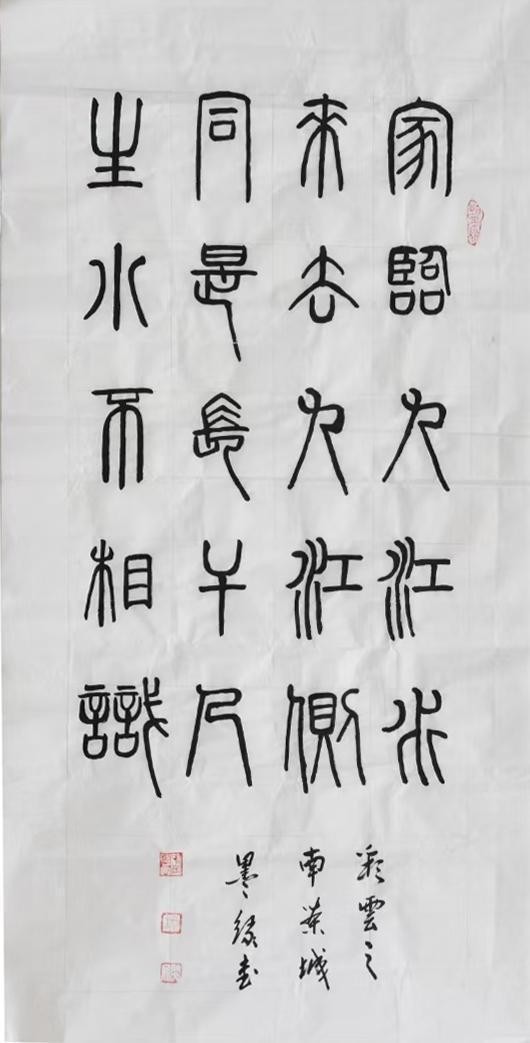 家臨九江水
來去九江側
同是長干人
生小不相識
彩雲之
南茶城
墨緣書